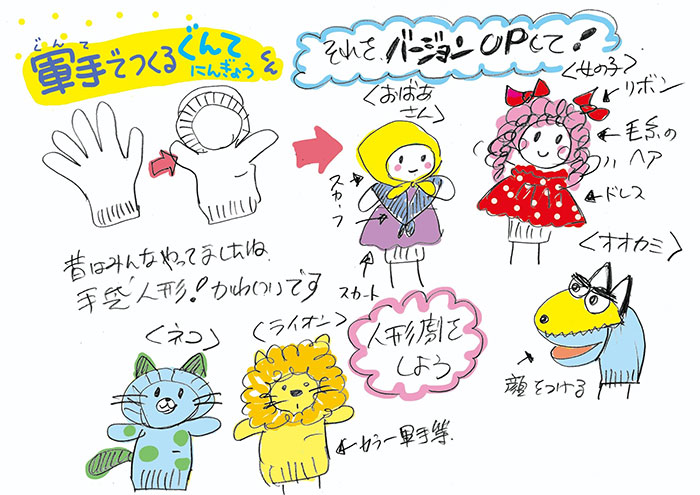 ぐんて
軍手でつくるぐんて
にんぎょう
それを、バージョンUPして!
<おばあ
さん>
<女の子>
リボン
毛糸の
ヘア
ドレス
スカーフ
スカート
昔はみんなやってましたね、
手袋人形!かわいいです
<オオカミ>
顔をつける
<ネコ>
<ライオン>
人形劇を
しよう
カラー軍手等、